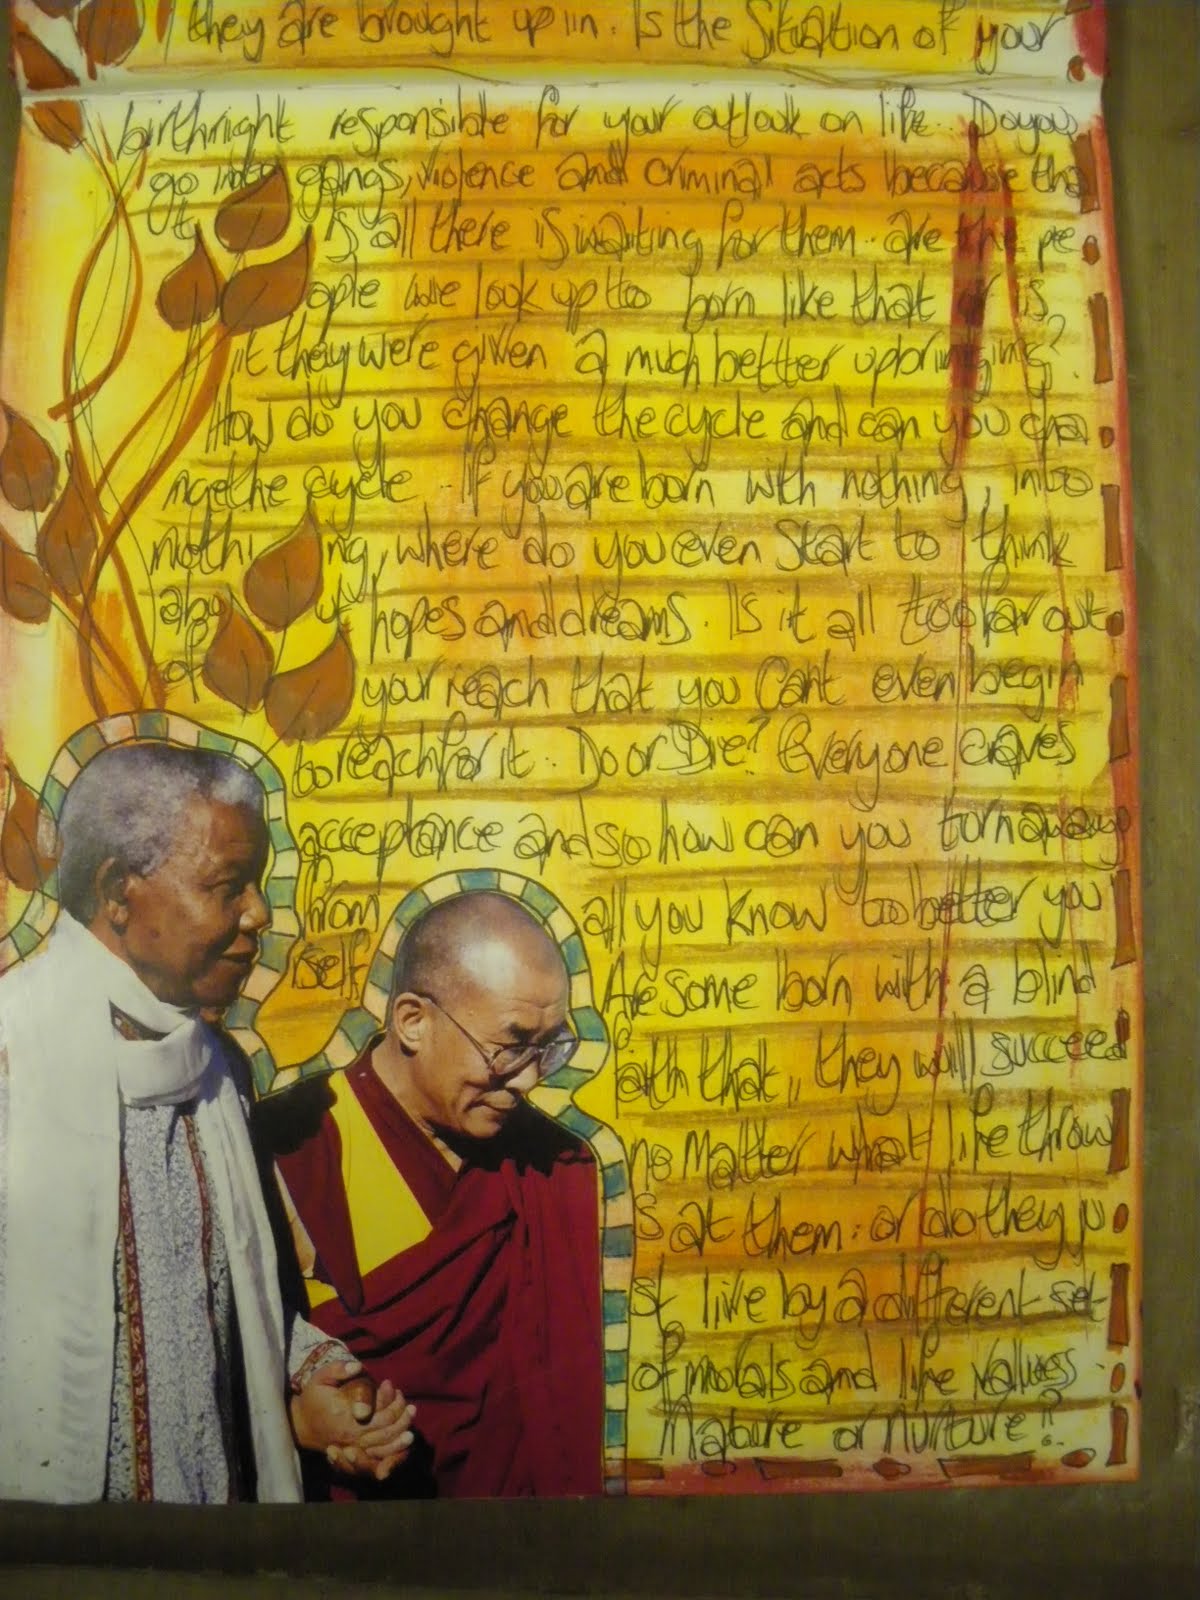 they are brought up in. Is the Situation of your
birthright responsible for your outlook on life.. Do you
go into gangs, violence and criminal acts because tha
t is all there is waiting for them.. are the pe
ople we look up to born like that or is
it they were given a much better upbringing?
How do you change the cycle and can you cha
nge the cycle.. If you are born with nothing, into
nothing, where do you even start to think
about hopes and dreams. Is it all too far out
of your reach that you Cant even begin
to reach for it.. Do or Die? Everyone craves
acceptance and so how can you turn away
from all you know to better you
self Are some born with a blind
faith that, they will succeed
no Matter what life throw
s at them: or do they ju
st live by a different set
of morals and life values.
Nature or Nurture?